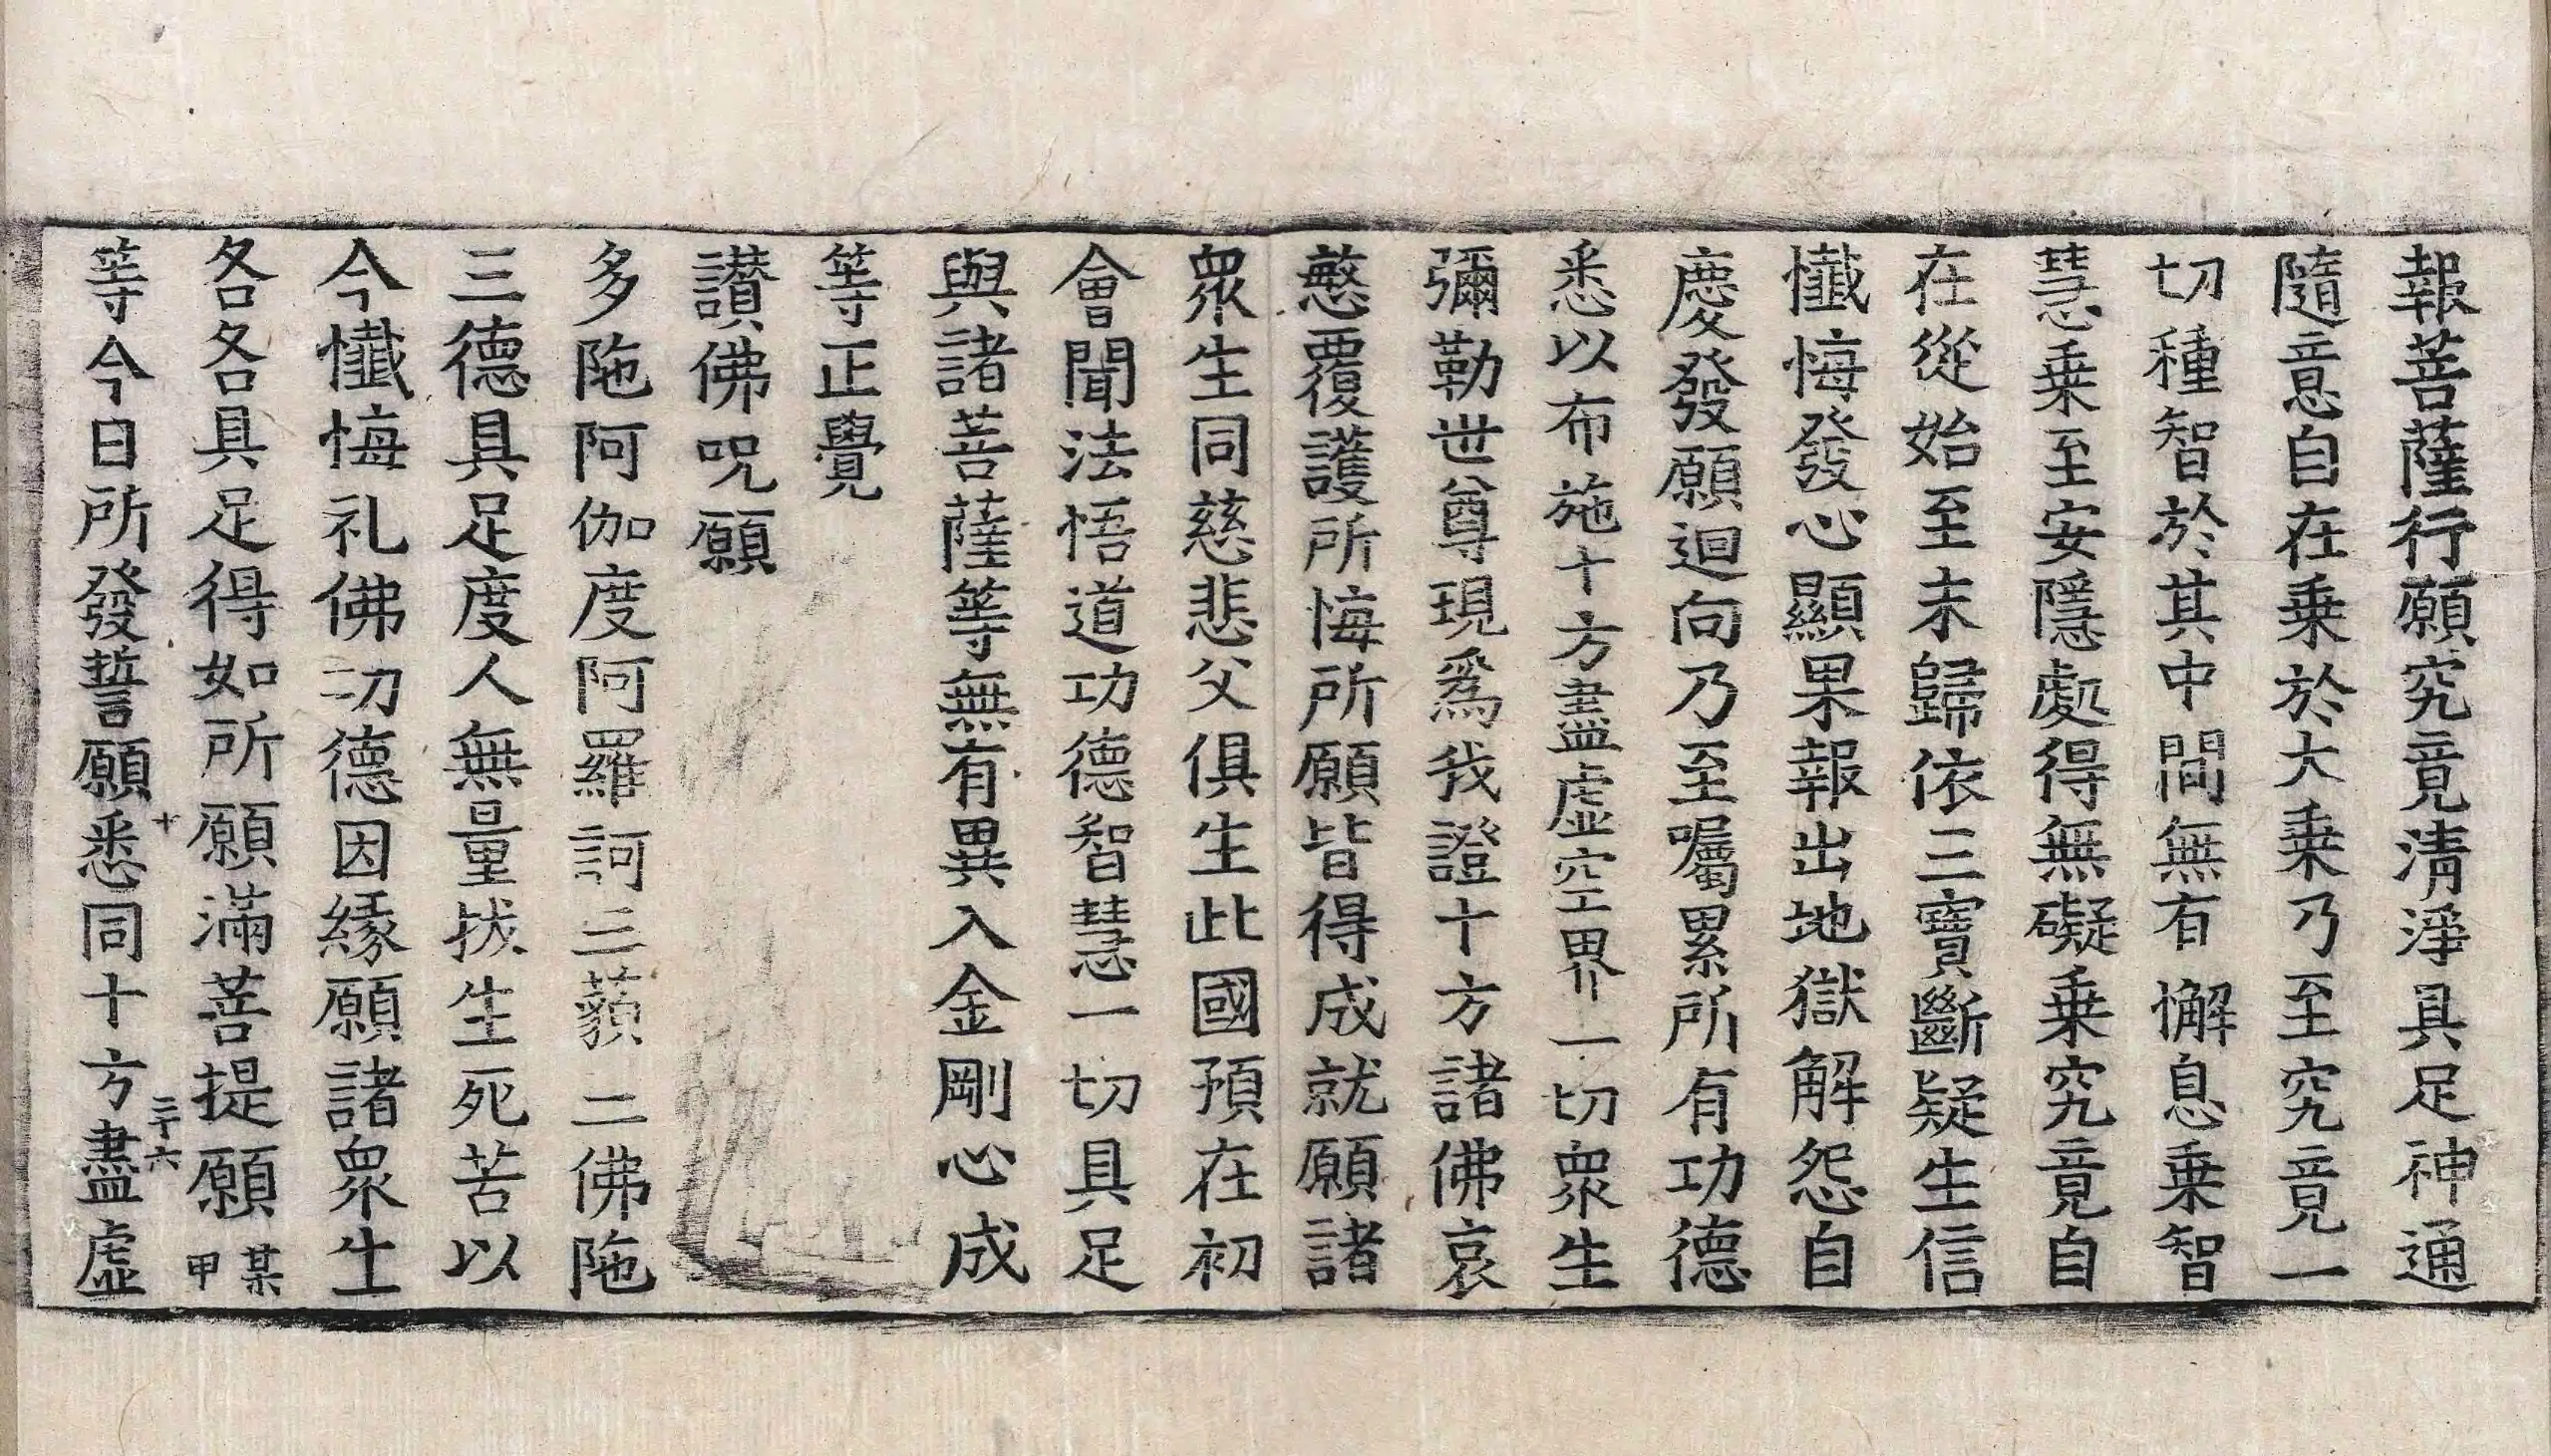 報菩薩行願究竟清淨具足神通
隨意自在乗於大乗乃至究竟一
切種智於其中間無有懈息乗智
慧乗至安隱處得無礙乗究竟自
在從始至末歸依三寶斷疑生信
懺悔發心顯果報出地獄解怨自
慶發願迴向乃至囑累所有功德
悉以布施十方盡虛空界一切衆生
彌勒世尊現爲我證十方諸佛哀
愍覆護所悔所願皆得成就願諸
衆生同慈悲父俱生此國預在初
會聞法悟道功德智慧一切具足
與諸菩薩等無有異入金剛心成
等正覺
讃佛呪願
多陁阿伽度阿羅訶三藐三佛陁
三德具足度人無量拔生死苦以
今懺悔礼佛功德因緣願諸衆生
各各具足得如所願滿菩提願某甲
等今日所發誓願悉同十方盡虛
十 三十六